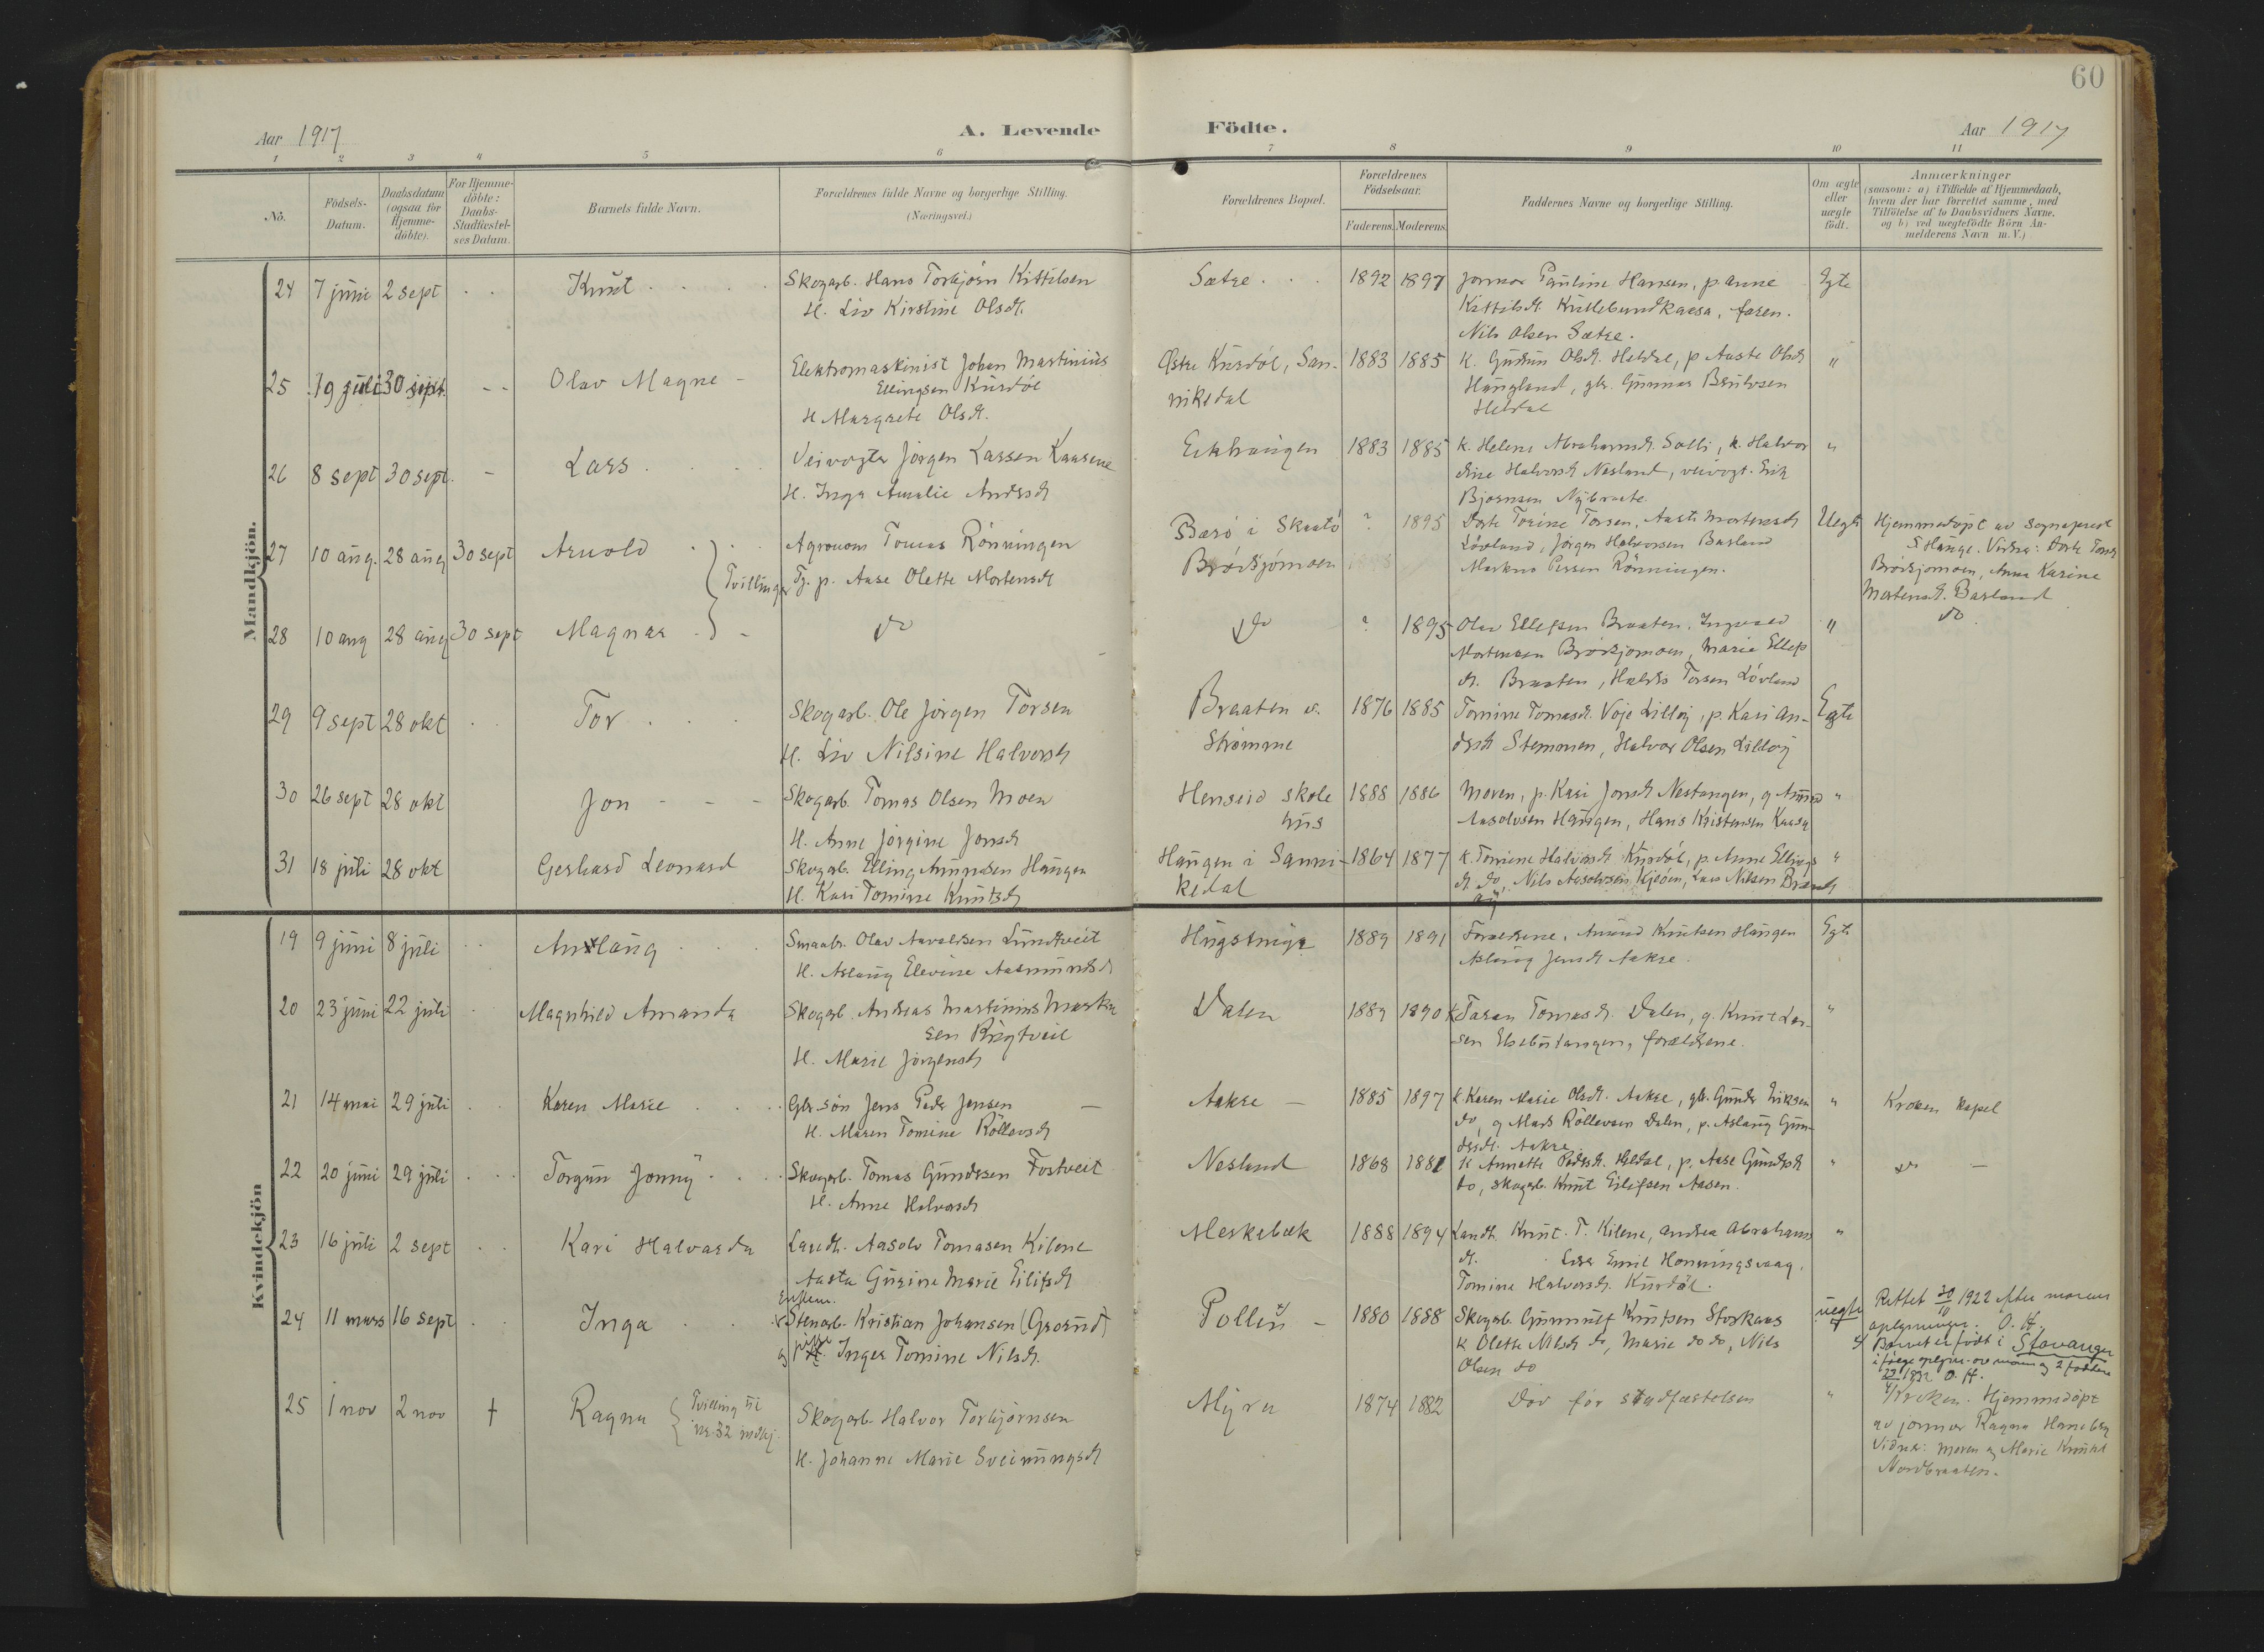 60
Aar 1917 A. Levende Födte. Aar 1917
1 2 3 4 5 6 7 8 9 10 11
No.
Födsels-
Datum.
Daabsdatum
(ogsaa for
Hjemme-
döbte).
For Hjemme-
döbte:
Daabs-
Stadfæstel-
ses Datum.
Barnets fulde Navn.
Forældrenes fulde Navne og borgerlige Stilling.
(Næringsvei.)
Forældrenes Bopæl.
Forældrenes
Födselsaar.
Faderens. Moderens.
Faddernes Navne og borgerlige Stilling.
Om ægte
eller
uægte
födt.
Anmærkninger
(saasom: a) i Tilfælde af Hjemmedaab,
hvem der har forrettet samme, med
Tilföielse af to Daabsvidners Navne.
og b) ved uægtefödte Börn An-
melderens Navn m.V.)
Mandkjön.
24 7 juni 2 sept Knut
Skogarb. Hans Torbjörn Kittilsen
H. Liv Kirstine Olsdt.
Sætre 1892 1897
Jormor Pauline Hansen, p. Anne
Kittilsdt. , faren.
Nils Olsen Sætre.
Egte
25 19 juli 30 sept. Olav Magne
Elektromaskinist Johan Martinius
Ellingsen Kurdöl
H Margrete Olsdt.
Östre Kurdöl, San-
nikedal
1883 1885
K. Gudrun Olsdt. Heldal, p Aaste Olsdt
Haugland, gbr. Gunnar
Heldal
"
26 8 sept 30 sept. Lars
Veivogter Jörgen Larsen Kaasene
H. Inga Amalie Andersdt
Eikhaugen 1883 1885
K. Helene Abrahamsdt. Solli, k. Halvor
dine Halvorsdt Nesland, veivogt. Erik
Bjørnsen Nybraate.
"
27 10 aug. 28 aug 30 sept Arnold
Tvillinger
Agronom Tomas Rönningen
Tj. p. Aase Olette Mortensdt
Barö i Skaatö
Brödsjömoen
? 1895
Dorte Torine Torsen, Aaste Mortensdt
Lövland, Jörgen Halvorsen Barland
Markus Rönningen.
Uegte
Hjemmedöpt av sogneprest
S Hauge. Vidner: Dorte Torsdt
Brödsjomoen, Anna Karine
Mortensdt. Barland
28 10 aug 28 aug 30 sept Magnar
do do ? 1895
Olav Ellefsen Braaten, Ingvald
Mortensen Brödsjomoen, Marie Ellefs
dt. Braaten, Halvor Torsen Lövland
" do
29 9 sept 28 okt Tor
Skogarb. Ole Jörgen Torsen
H. Liv Nilsine Halvorsdt
Braaten v.
Strömme
1876 1885
Tomine Tomasdt. Voje Lilleöj, p. Kari An-
dersdt Stemmen, Halvor Olsen Lilleöj
Egte
30 26 sept 28 okt Jon
Skogarb. Tomas Olsen Moen
H. Anne Jörgine Jonsdt
Henseid skole
hus
1888 1886
Moren, p. Kari Jonsdt Nestangen, g Amund
Aasolvsen Haugen, Hans Kristensen Kaasa
"
31 18 juli 28 okt Gerhard Leonard
Skogarb. Elling Amundsen Haugen
H. Kari Tomine Knutsdt
Haugen i Sanni-
kedal
1864 1877
K. Tomine Halvorsdt Kurdöl, p. Anne Ellings
dt do, Nils Aasolvsen Kjeöen, Lars Nilsen
"
Kvindekjön
19 9 juni 8 juli Anlaug
Smaabr. Olav Aavaldsen Lundtveit
H. Aslaug Elevine Aasmundsdt
1889 1891
Forældrene, Amund Knutsen Haugen
Aslaug Jensdt Aakre.
Egte
20 23 juni 22 juli Magnhild Amanda
Skogarb. Andreas Martinius Marku
sen Rugtveit
H. Marie Jörgensdt
Dalen 1889 1890
K Taran Tomasdt. Dalen, g. Knut Lar-
sen , forældrene.
"
21 14 mai 29 juli Karen Marie
Gbr.sön Jens Peder Jensen
H. Maren Tomine Rollevsdt
Aakre 1885 1897
K. Karen Marie Olsdt. Aakre, gb. Gunder Eriksen
do, g Mads Rollevsen Dalen, p. Aslaug Gun-
dersdt. Aakre
" Kroken kapel
22 20 juni 29 juli Torgun Jonny
Skogarb. Tomas Gundersen Tostveit
H. Anne Halvorsdt
Nesland 1868 1881
K Annette Pedersdt. Heldal, p. Aase Gundersdt
do, skogarb. Knut Eilefsen Aasen.
" do
23 16 juli 2 sept Kari Halvarda
Landh. Aasolv Tomasen Kilene
Aasta Gurine Marie Eilifsdt
Merkebæk 1888 1894
Landh. Knut. T. Kilene, Andrea Abrahams
dt. Emil Honningsvaag,
Tomine Halvorsdt. Kurdöl.
"
24 11 mars 16 sept Inga
Enkem.
Stenarb. Kristian Johansen (Grorud)
og pike Inger Tomine Nilsdt.
Pollen 1880 1888
Skogarb. Gunnulf Knutsen Storkaas
K Olette Nilsdt do, Marie do do, Nils
Olsen do
uegte
Rettet 30/10 1922 efter morens
oplysninger. O. H.
Barnet er födt i Stavanger
ifölge oplysn. av moren og 2 faddere
1922 O. H.
25 1 nov 2 nov † Ragna
Tvilling til
nr. 32 mdkj.
Skogarb. Halvor Torbjörnsen
H. Johanne Marie Sveinungsdt
Myra 1874 1882
Döv för stadfæstelsen
"
Kroken. Hjemmedöpt
av jormor Ragna Haneborg
Vidner: moren og Marie Knutsdt
Nordbraaten.